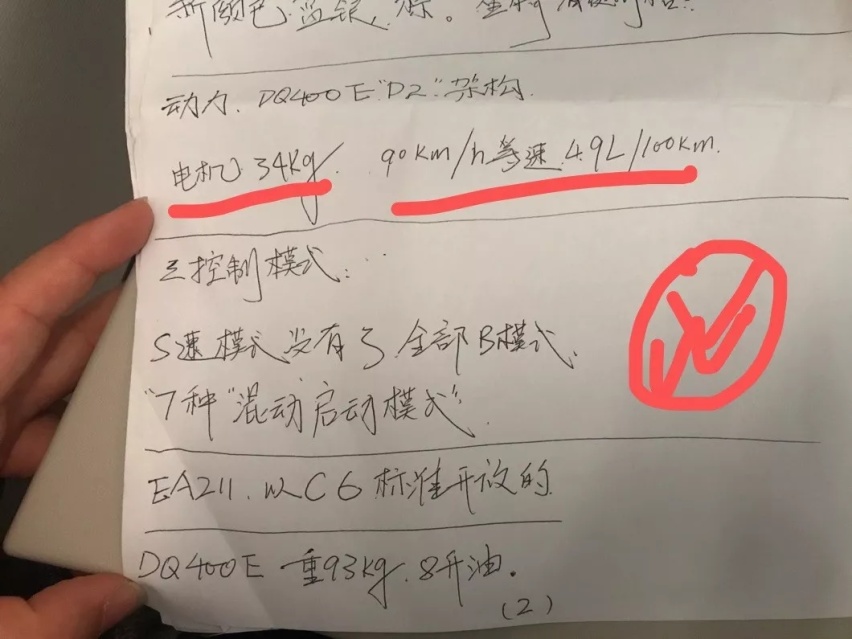 新颜色 蓝银,棕。
动力. DQ400E"D2"架构.
电机 34kg. 90km/h等速.4.9L/100km.
三控制模式:..
S速模式没有了 全部B模式.
"7种"混动启动模式".
EA211. 以C6标准开放的
DQ400E 重93kg.8升油。
(2)